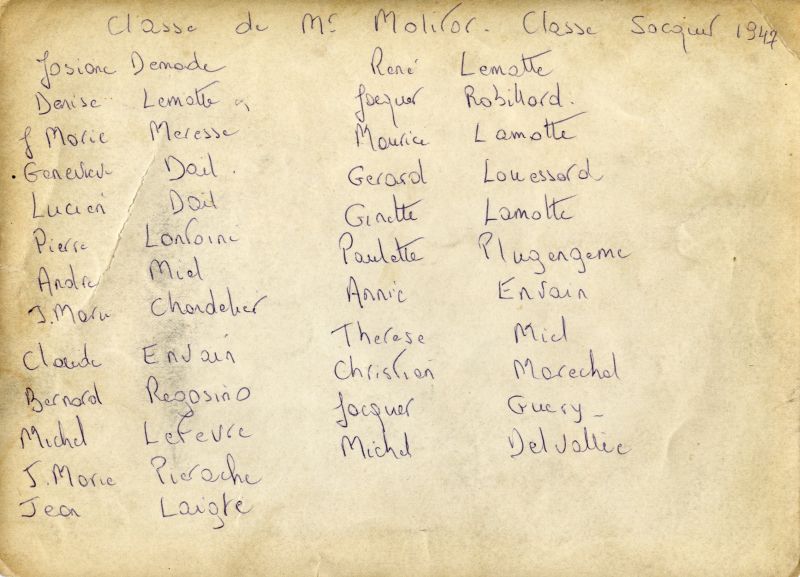 Classe de Mr Molitor. Classe Sacquet 1947
Josiane Demade
Denise Lemotte
J Marie Meresse
Genevieve Dail.
Lucien Dail
Pierre Lontoine
Andre Miel
J.Marie Chandelier
Claude Envain
Bernard Regosino
Michel Lefevre
J.Marie Pierache
Jean Laigte
René Lemotte
Jacques Robillard.
Maurice Lamotte
Gerard Louessard
Ginette Lamotte
Paulette Plugengeme
Annie Envain
Therese Miel
Christian Marechal
Jacques Guery_
Michel Delvallée